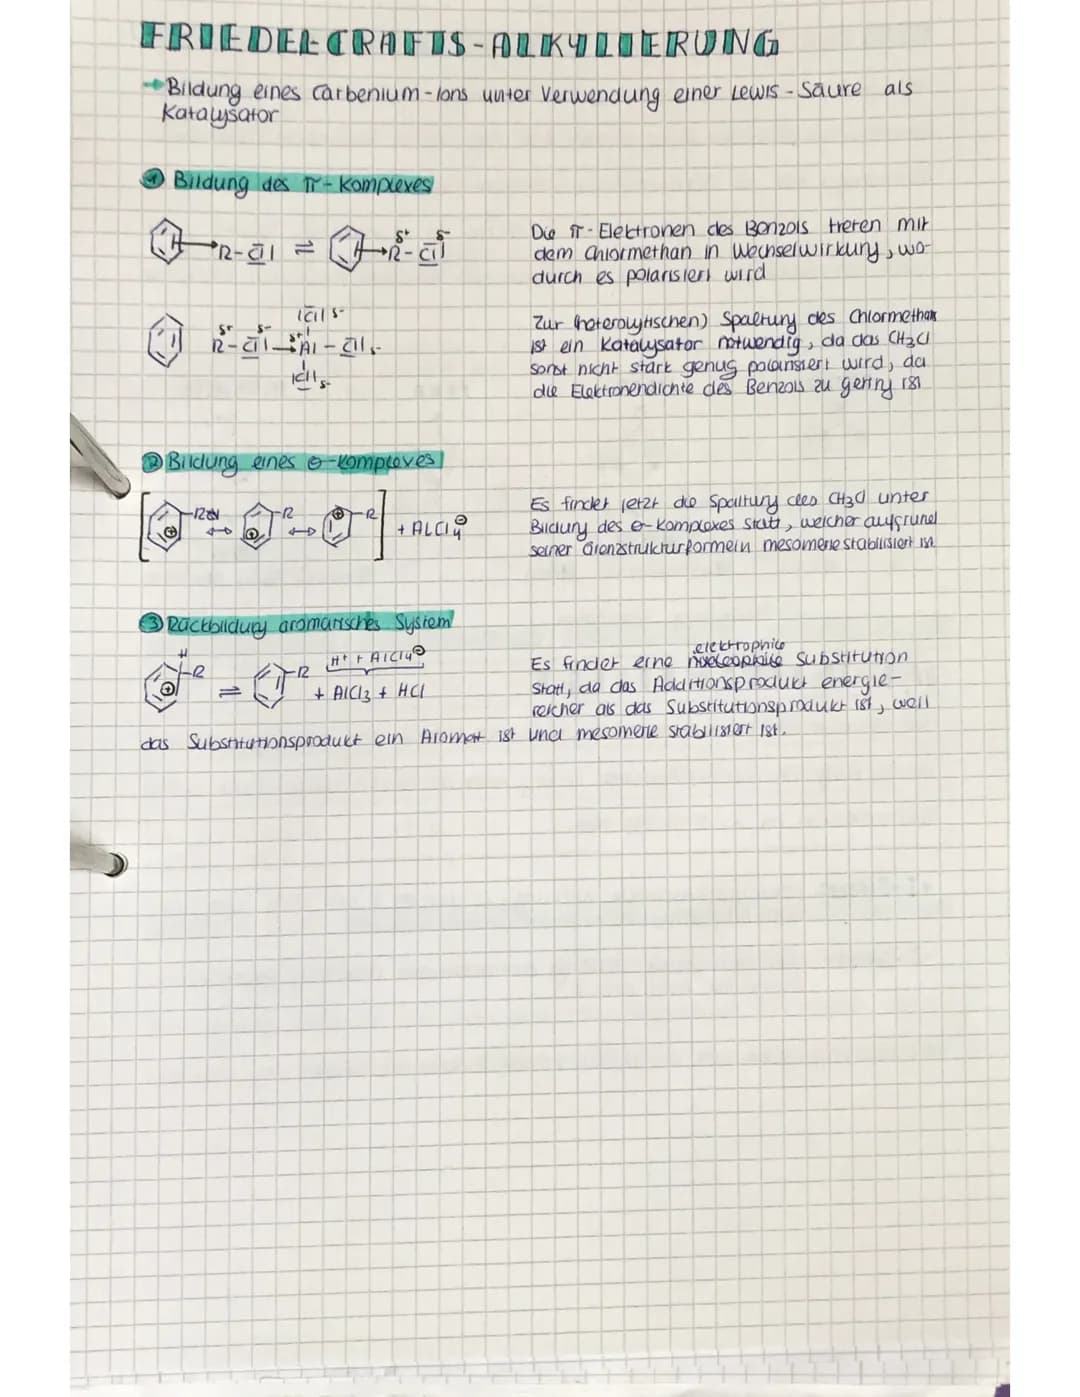 FRIEDEL CRAFTS-ALKYLIERUNG
→ Bildung eines Carbenium-Ions unter Verwendung einer Lewis-Säure als
Katalysator
① Bildung des π-Komplexes
R-Cl ⇌ R-Cl δ+ δ-
Die π-Elektronen des Benzols treten mit
dem Chlormethan in Wechselwirkung, wo-
durch es polarisiert wird
|Cl| δ-
δ+ δ- δ+
R-Cl| → Al - Cl| δ-
|Cl| δ-
Zur (heterolytischen) Spaltung des Chlormethan
ist ein Katalysator notwendig, da das CH3Cl
sonst nicht stark genug polarisiert wird, da
die Elektronendichte des Benzols zu gering ist
② Bildung eines σ-Komplexes
[ R ↔ R ↔ R ] + AlCl4⊖
Es findet jetzt die Spaltung des CH3Cl unter
Bildung des σ-Komplexes statt, welcher aufgrund
seiner Grenzstrukturformeln mesomeriestabilisiert ist
③ Rückbildung aromatisches System
H R ⇌ R H+ + AlCl4⊖
+ AlCl3 + HCl
elektrophile
Es findet eine Substitution
statt, da das Additionsprodukt energie-
reicher als das Substitutionsprodukt ist, weil
das Substitutionsprodukt ein Aromat ist und mesomerie stabilisiert ist.